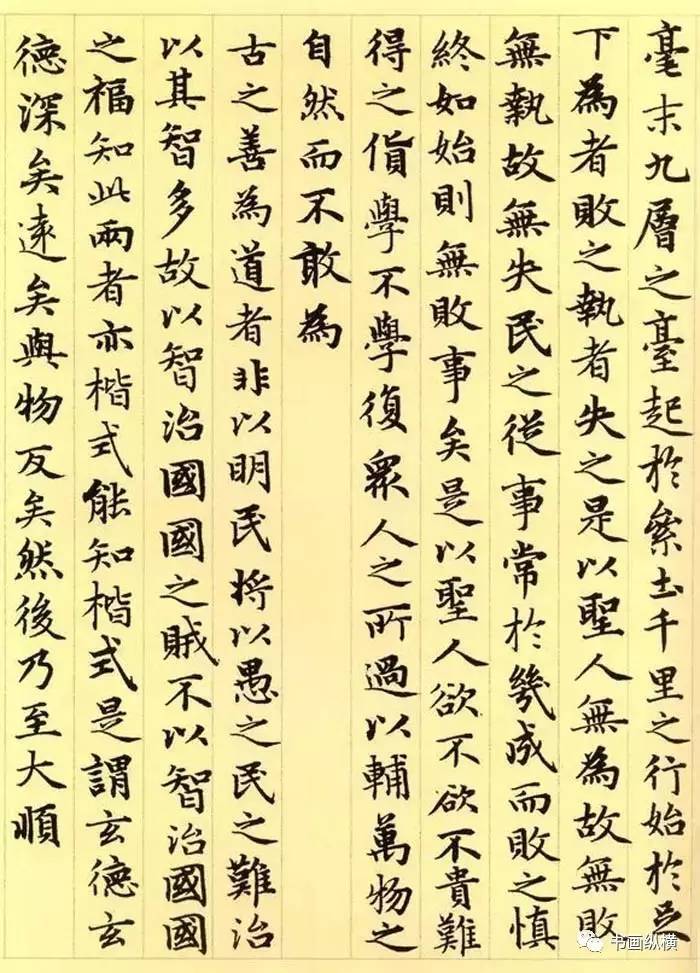 毫末九層之臺起於絫土千里之行始於足
下為者敗之執者失之是以聖人無為故無敗
無執故無失民之從事常於幾成而敗之慎
終如始則無敗事矣是以聖人欲不欲不貴難
得之貨學不學復眾人之所過以輔萬物之
自然而不敢為
古之善為道者非以明民将以愚之民之難治
以其智多故以智治國國之賊不以智治國國
之福知此兩者亦楷式能知楷式是謂玄德玄
德深矣遠矣與物反矣然後乃至大順
书画纵横